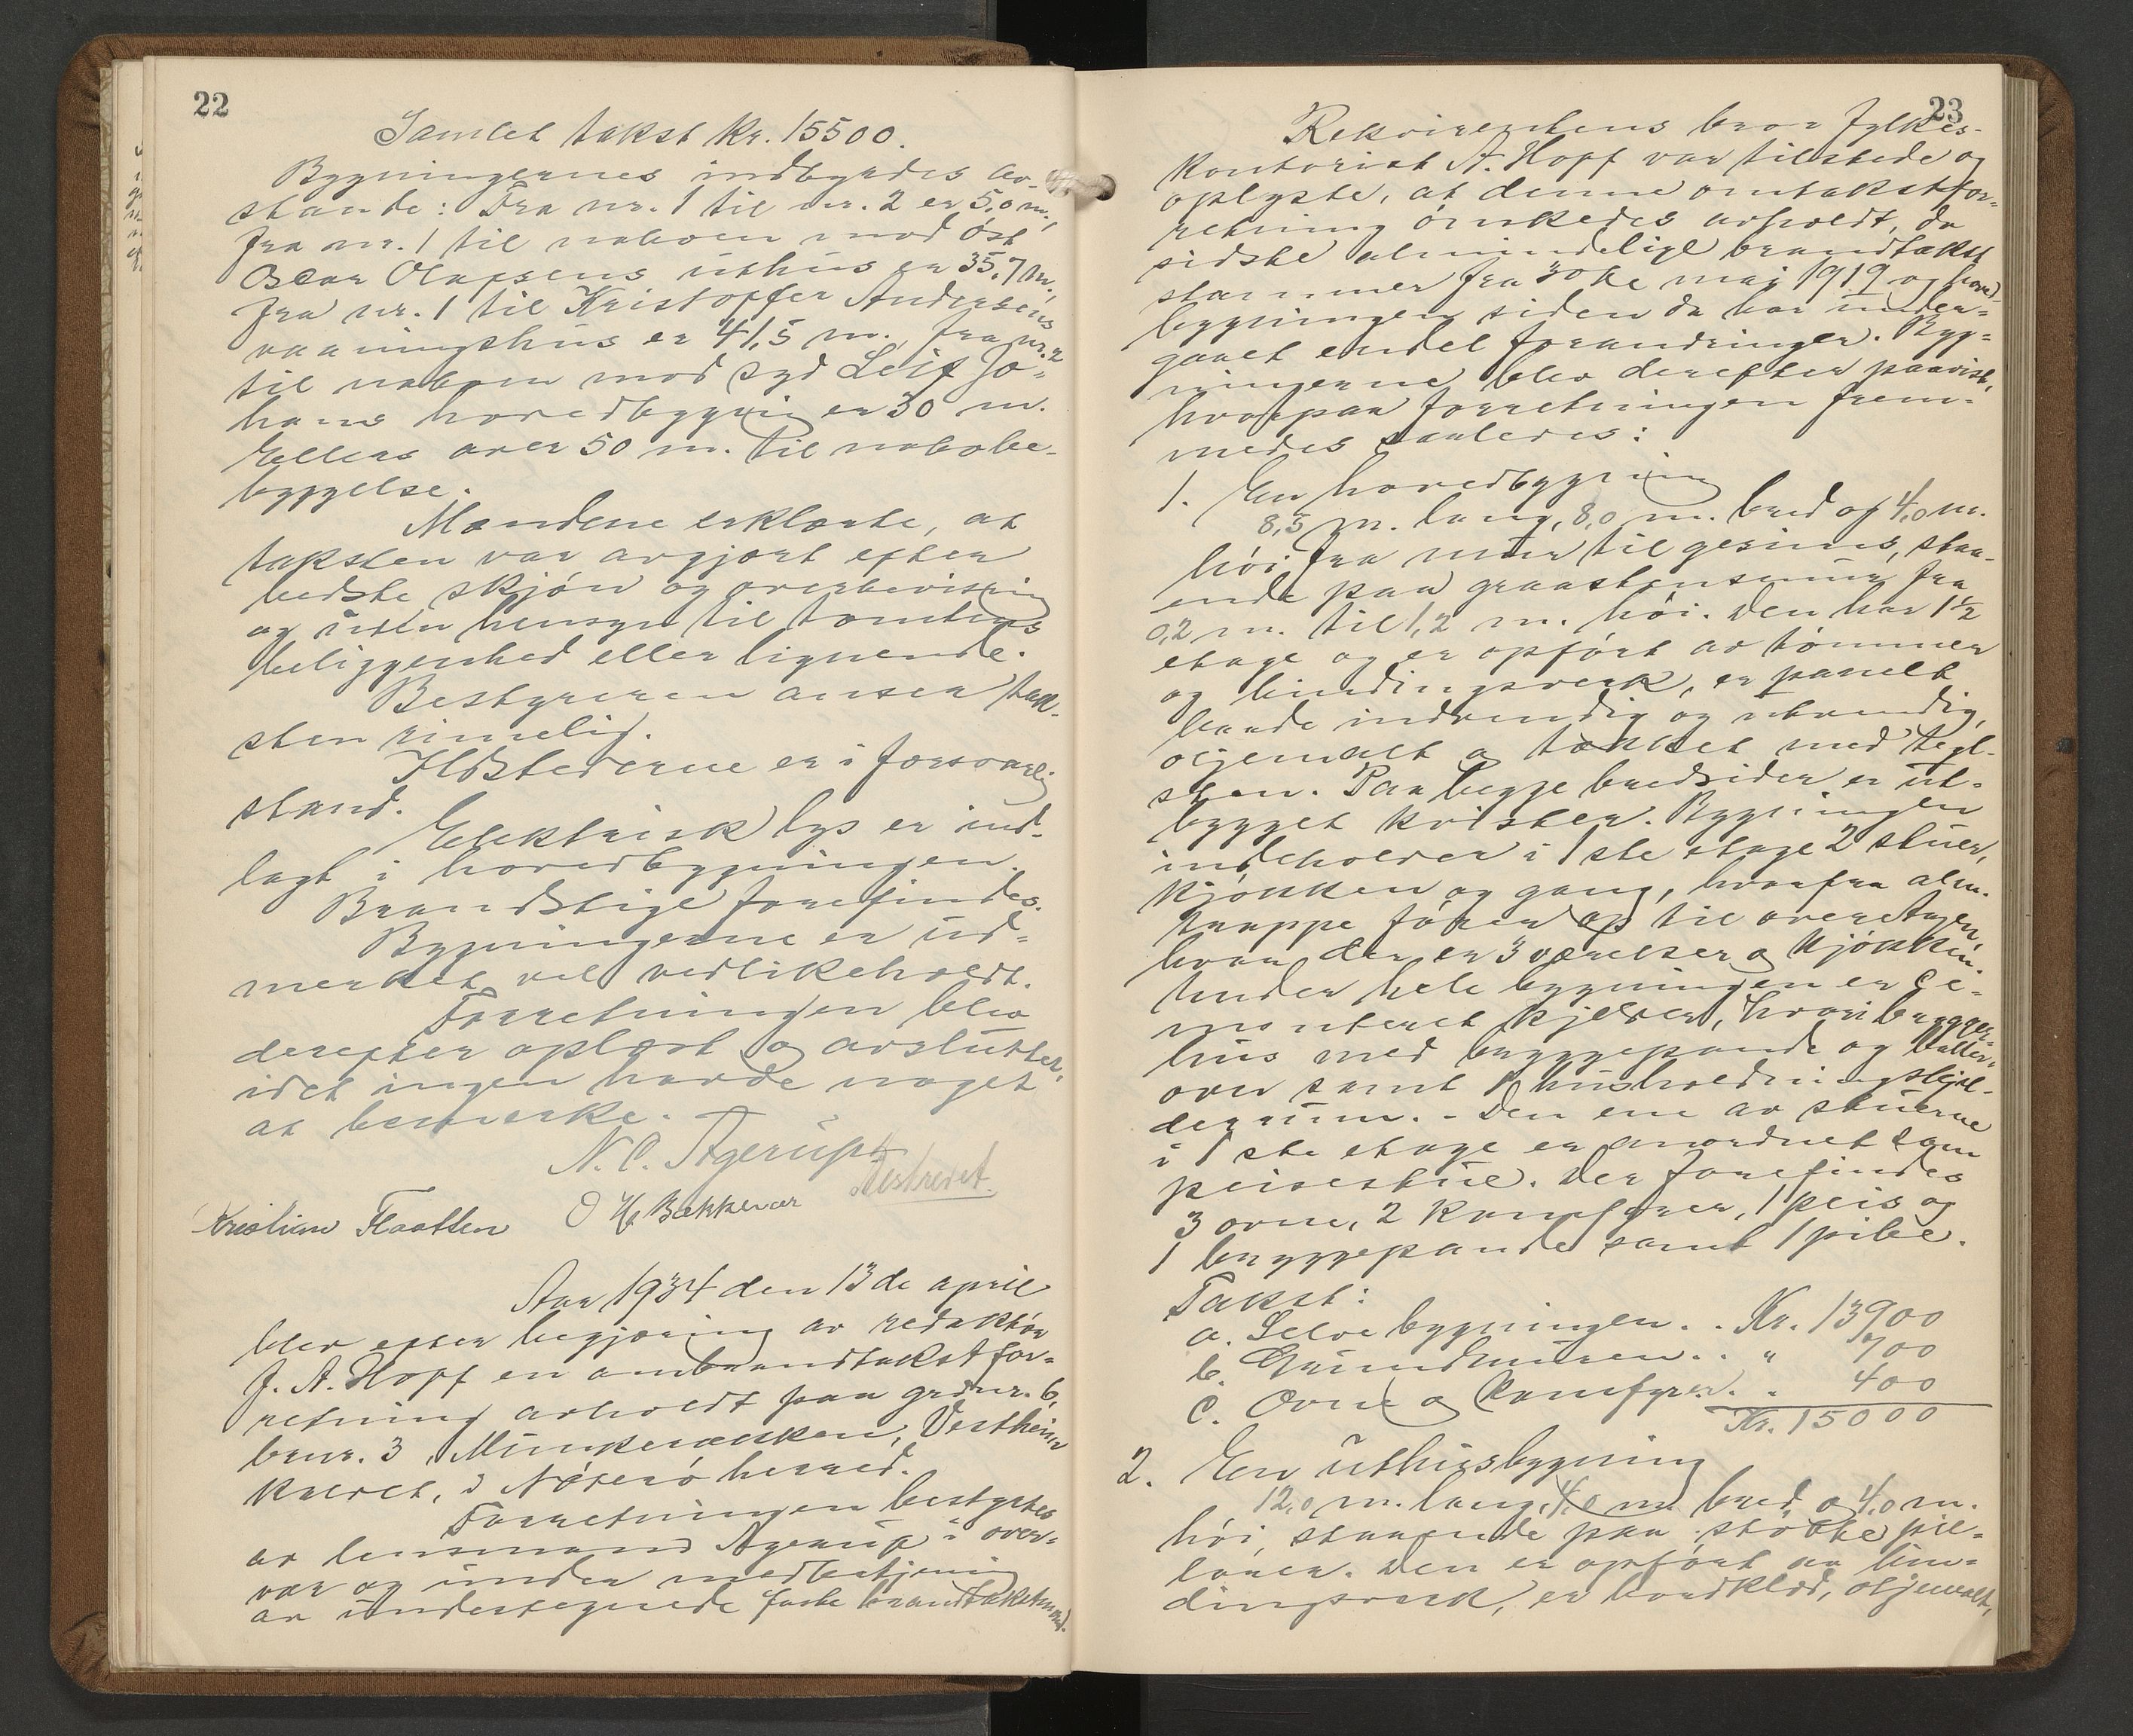 22
Samlet takst kr. 15500.
Bygningernes indbyrdes av-
stande: Fra nr. 1 til nr. 2 er 5,0 m.,
fra nr. 1 til naboen mod öst
Oscar Olafsens uthus er 35,7 m.,
fra nr. 1 til Kristoffer Andersens
vaaningshus er 41,5 m., fra nr. 2
til naboen mod syd Leif Jo-
hans hovedbygning er 30 m.
Ellers over 50 m. til nabobe-
byggelse.
Mændene erklærte, at
taksten var avgjort efter
bedste skjön og overbevisning
og uten hensyn til tomtens
beliggenhed eller lignende.
Bestyreren anser tak-
sten rimelig.
Ildstederne er i forsvarlig
stand.
Elektrisk lys er ind-
lagt i hovedbygningen.
Brandstige forefindes.
Bygningerne er ud-
merket vel vedlikeholdt.
Forretningen blev
derefter oplæst og avsluttet,
idet ingen havde noget
at bemerke.
N. C. Agerup
Utskrevet.
Kristian Flaatten O H Bakkevar
Aar 1934 den 13de april
blev efter begjæring av redaktör
J. A. Hopf en ombrandtakstfor-
retning avholdt paa grdnr. 6,
brnr. 3, Munkerækken, Vestheim
kaldet, i Nöterö herred.
Forretningen bestyrtes
av lensmand Agerup i over-
vær og under medbetjening
av undertegnede faste brandtakstmænd.
23
Rekvirentens bror fylkes-
kontorist A. Hopf var tilstede og
oplyste, at denne omtakstfor-
retning önskedes avholdt, da
sidste almindelige brandtakst
stammer fra 30te mai 1919 og hoved-
bygningen siden da har under-
gaaet endel forandringer. Byg-
ningerne blev derefter paavist,
hvorpaa forretningen frem-
medes saaledes:
1. En hovedbygning
8,5 m. lang, 8,0 m. bred og 4,0 m.
höi fra mur til gesims, staa-
ende paa graastensmur fra
0,2 m. til 1,2 m. höi. Den har 1 1/2
etage og er opfört av tömmer
og bindingsverk, er panelt
baade indvendig og utvendig,
oljemalt og tækket med tegl-
sten. Paa begge bredsider er ut-
bygget kvister. Bygningen
indeholder i 1ste etage 2 stuer,
kjökken og gang, hvorfra alm.
trappe förer op til overetagen,
hvor der er 3 værelser og kjökken.
Under hele bygningen er ce-
menteret kjelder, hvori brygger-
hus med bryggepande og
ovn samt 1 husholdningskjel-
derrum. - Den ene av stuerne
i 1ste etage er anordnet som
peisestue. Der forefindes
3 ovne, 2 komfyrer, 1 peis og
1 bryggepande samt 1 pibe.
Takst:
a. Selve bygningen . . Kr. 13900
b. Grundmuren . . " 700
c. Ovne og komfyrer . . 400
Kr. 15000
2. En uthusbygning
12,0 m. lang, 4,0 m. bred og 4,0 m.
höi, staaende paa stöbte pil-
larer. Den er opfört av bin-
dingsverk, er bordklæd, oljemalt,